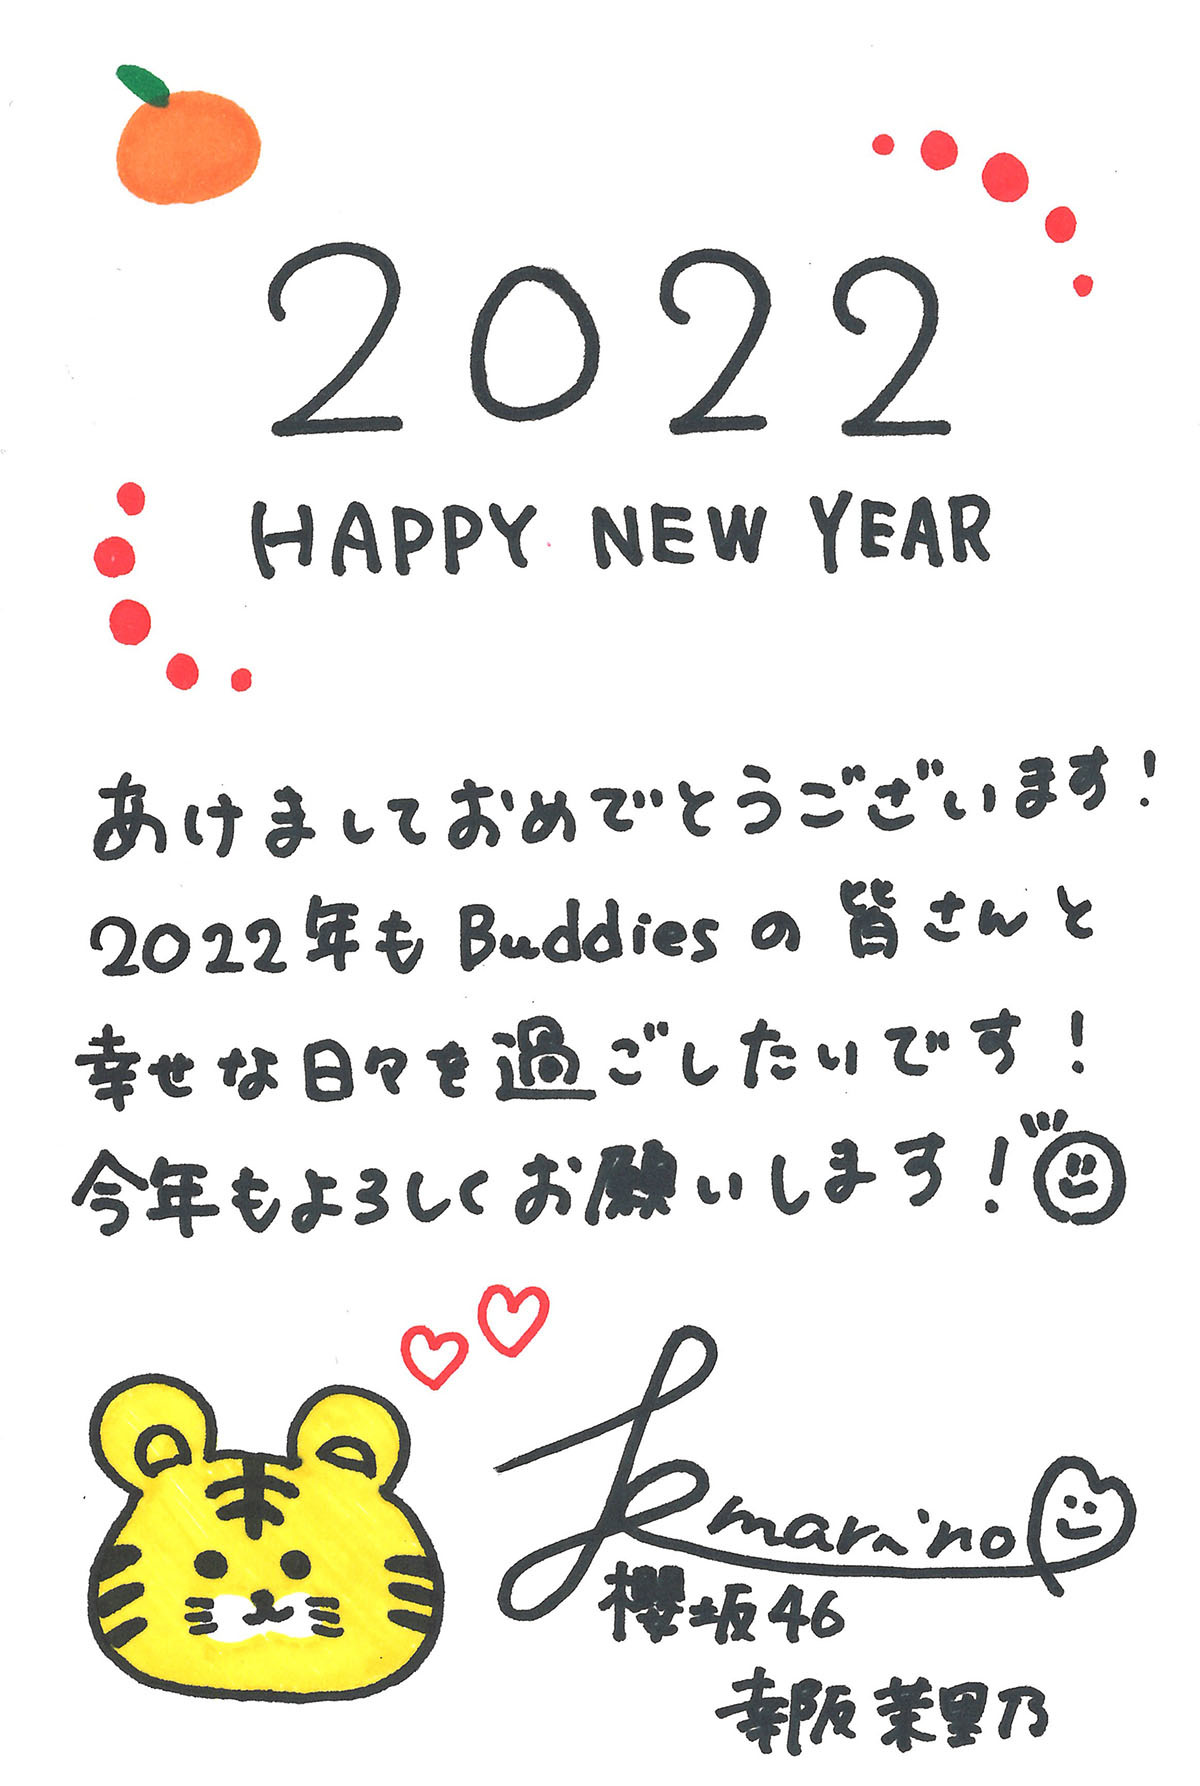 2022
HAPPY NEW YEAR
あけましておめでとうございます!
2022年もBuddiesの皆さんと
幸せな日々を過ごしたいです!
今年もよろしくお願いします!
k marino
櫻坂46
幸阪茉里乃